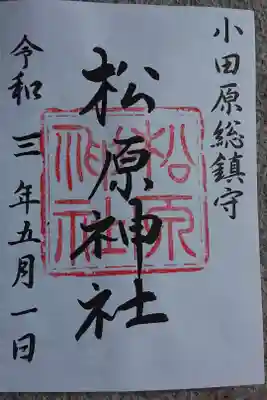 小田原総鎮守
松原神社
松原神社
令和三年五月一日